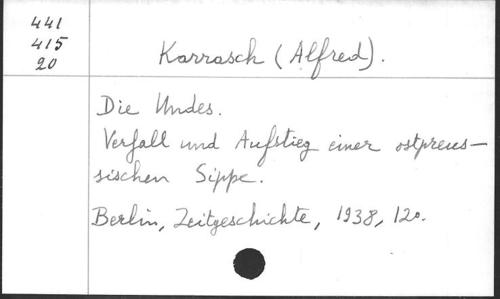 441
415
20
Karrasch (Alfred).
Die Undes.
Verfall und Aufstieg einer ostpreus-
sischen Sippe.
Berlin, Zeitgeschichte, 1938, 12o.